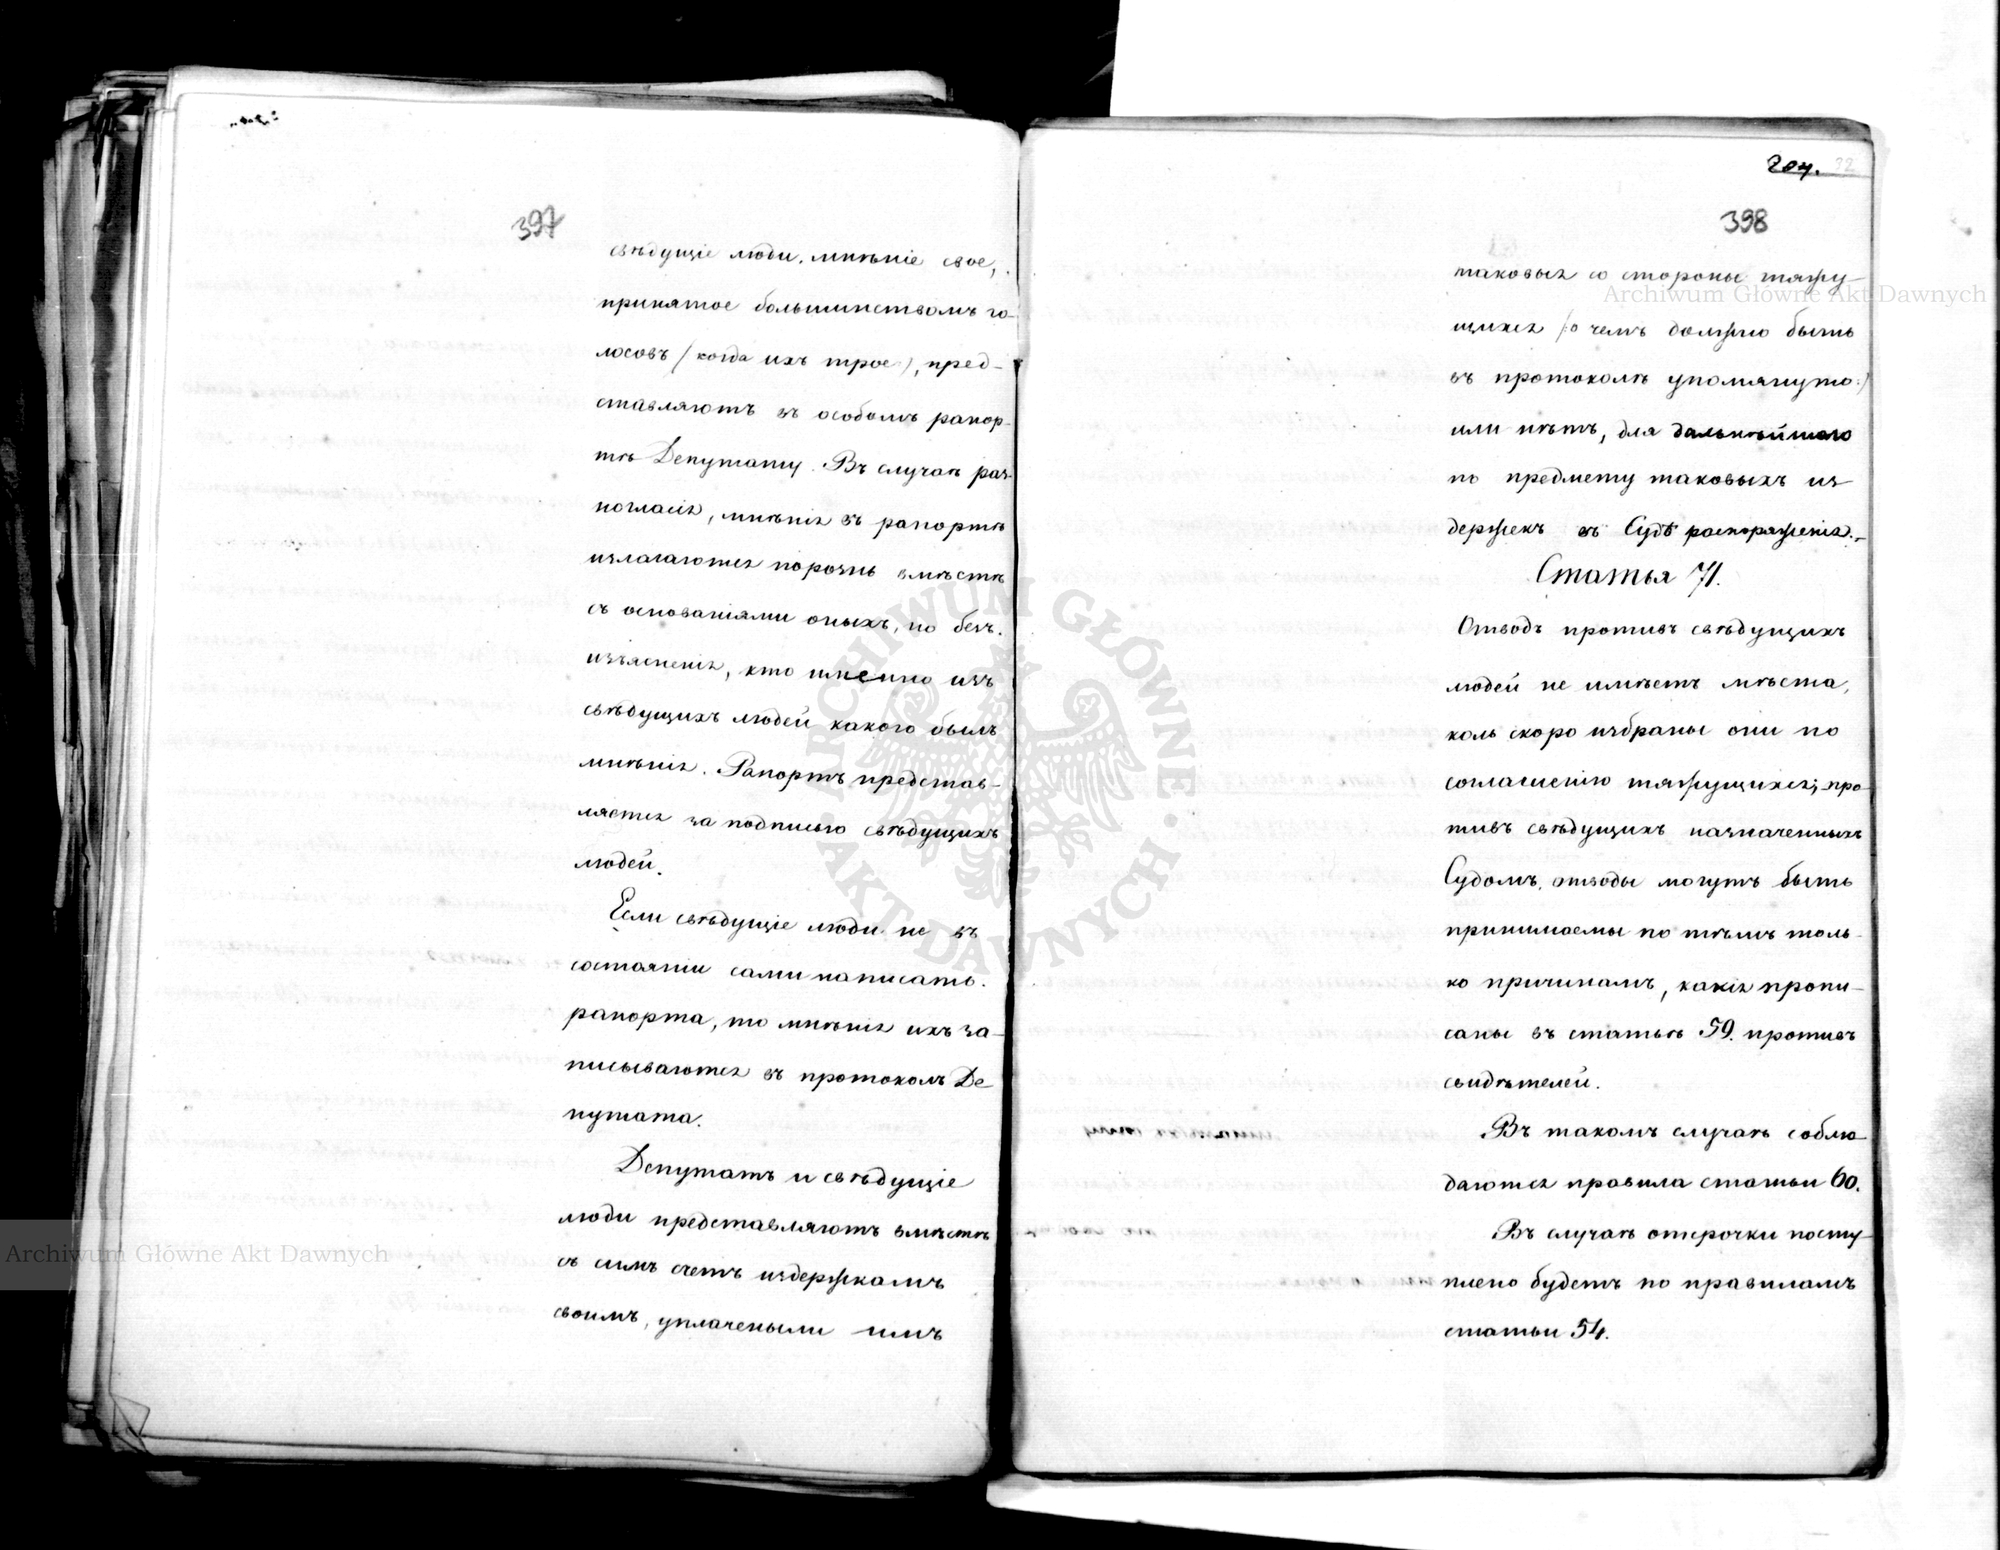 397
свѣдущіе люди, мнѣніе свое,
принятое большинствомъ го-
лосовъ /когда ихъ трое/, пред-
ставляютъ въ особомъ рапор-
тѣ Депутату. Въ случаѣ раз-
ногласія, мнѣнія въ рапортѣ
излагаются порознь вмѣстѣ
съ основаніями оныхъ, но безъ
изъясненія, кто именно изъ
свѣдущихъ людей какого былъ
мнѣнія. Рапортъ представ-
ляется за подписью свѣдущихъ
людей.
Если свѣдущіе люди не въ
состояніи сами написать
рапорта, то мнѣнія ихъ за-
писываются въ протоколъ Де
путата.
Депутатъ и свѣдущіе
люди представляютъ вмѣстѣ
съ симъ счетъ издержкамъ
своимъ, уплаченыли имъ
204. 32
398
таковыя со стороны тяжу-
щихся /:о чемъ должно быть
въ протоколѣ упомянуто:/
или нѣтъ, для дальнѣйшаго
по предмету таковыхъ из-
держекъ въ Судѣ распоряженія.-
Статья 71.
Отводъ противъ свѣдущихъ
людей не имѣетъ мѣста,
коль скоро избраны они по
соглашенію тяжущихся; про
тивъ свѣдущихъ назначенныхъ
Судомъ, отводы могутъ быть
принимаемы по тѣмъ толь-
ко причинамъ, какія пропи-
саны въ статьѣ 59. противъ
свидѣтелей.
Въ такомъ случаѣ соблю-
даются правила статьи 60.
Въ случаѣ отсрочки посту-
плено будетъ по правиламъ
статьи 54.
Archiwum Główne Akt Dawnych
Archiwum Główne Akt Dawnych
ARCHIWUM GŁÓWNE • AKT DAWNYCH •